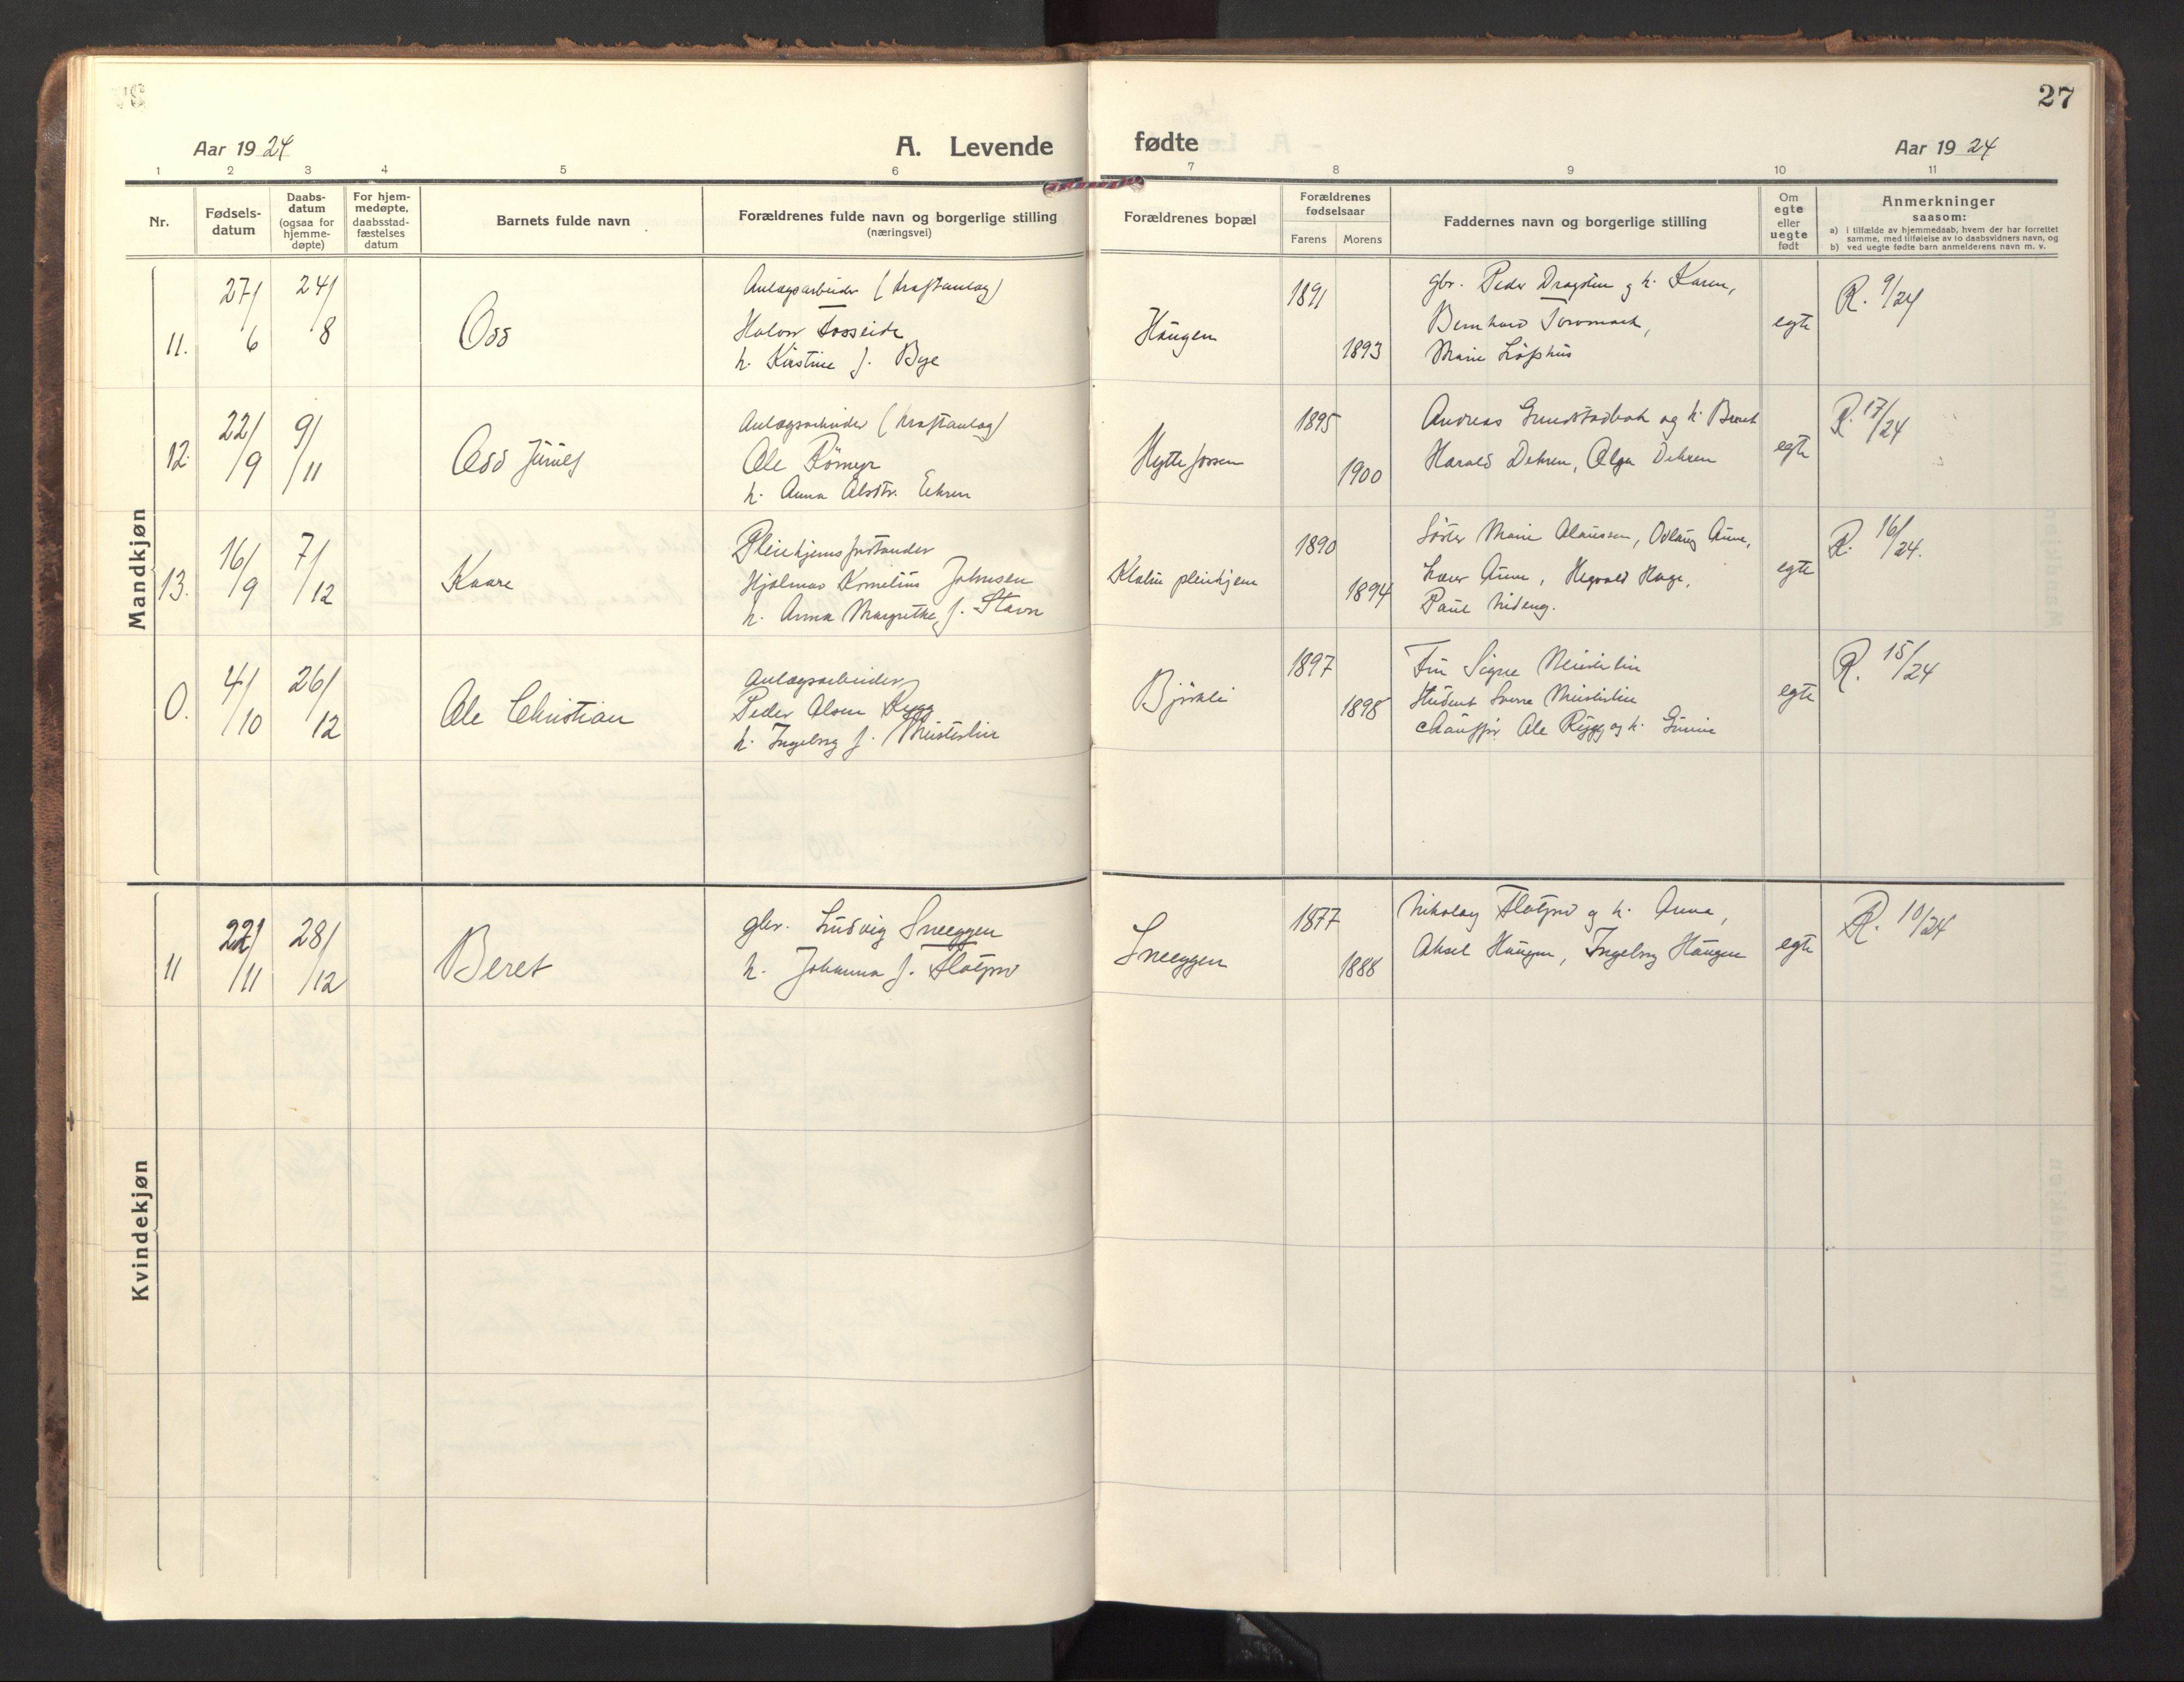 27
Aar 1924
A. Levende fødte
Aar 1924
1 2 3 4 5 6 7 8 9 10 11
Nr.
Fødsels-
datum
Daabs-
datum
(ogsaa for
hjemme-
døpte)
For hjem-
medøpte,
daabsstad-
fæstelses
datum
Barnets fulde navn
Forældrenes fulde navn og borgerlige stilling
(næringsvei)
Forældrenes bopæl
Forældrenes
fødselsaar
Farens Morens
Faddernes navn og borgerlige stilling
Om
egte
eller
uegte
født
Anmerkninger
saasom:
a) i tilfælde av hjemmedaab, hvem der har forrettet
samme, med tilføielse av to daabsvidners navn, og
b) ved uegte fødte barn anmelderens navn m. v.
Mandkjøn
11. 27/6 24/8 Odd
Anlægsarbeider (kraftanlæg)
Halvor Fosseide
h. Kirstine f. Bye
Haugen
1891
1893
gbr. Peder Dragsten og h. Karen,
Bernhard
Marie
egte
R. 9/24
12. 22/9 9/11 Odd
Anlægsarbeider (kraftanlæg)
Ole
h. Anna
Hyttefossen
1895
1900
Andreas og h. Beret
Harald Dehren, Olga Dehren
egte
R. 17/24
13. 16/9 7/12 Kaare
Pleiehjemsforstander
Hjalmar Kornelius Johnsen
h. Anna Margrethe, f. Stavn
Klæbu pleiehjem
1890
1894
Søster Marie Olaussen, Odlaug Aune,
Lærer Aune, Hage,
Paul Nideng.
egte
R. 16/24.
0. 4/10 26/12 Ole Christian
Anlægsarbeider
Peder Olsen Rygg
h. Ingeborg f. Meisterlin
Bjørkli
1897
1898
Fru Signe Meisterlin
Student Sverre Meisterlin
chauffør Ole Rygg og h. Gunnie
egte
R. 15/24
Kvindekjøn
11 22/11 28/12 Beret
gbr. Ludvig Sneeggen
h. Johanna f. Flatjord
Sneeggen
1877
1888
Nikolay Flatjord og h. Anna,
Aksel Haugen, Ingeborg Haugen
egte
R. 10/24